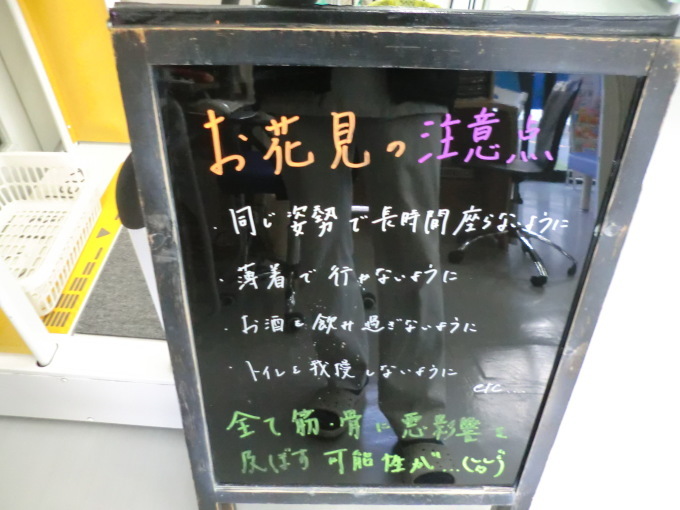 お花見の注意点
・同じ姿勢で長時間座らないように
・薄着で行かないように
・お酒を飲み過ぎないように
・トイレを我慢しないように
etc......
全て筋・骨に悪影響を
及ぼす可能性が...